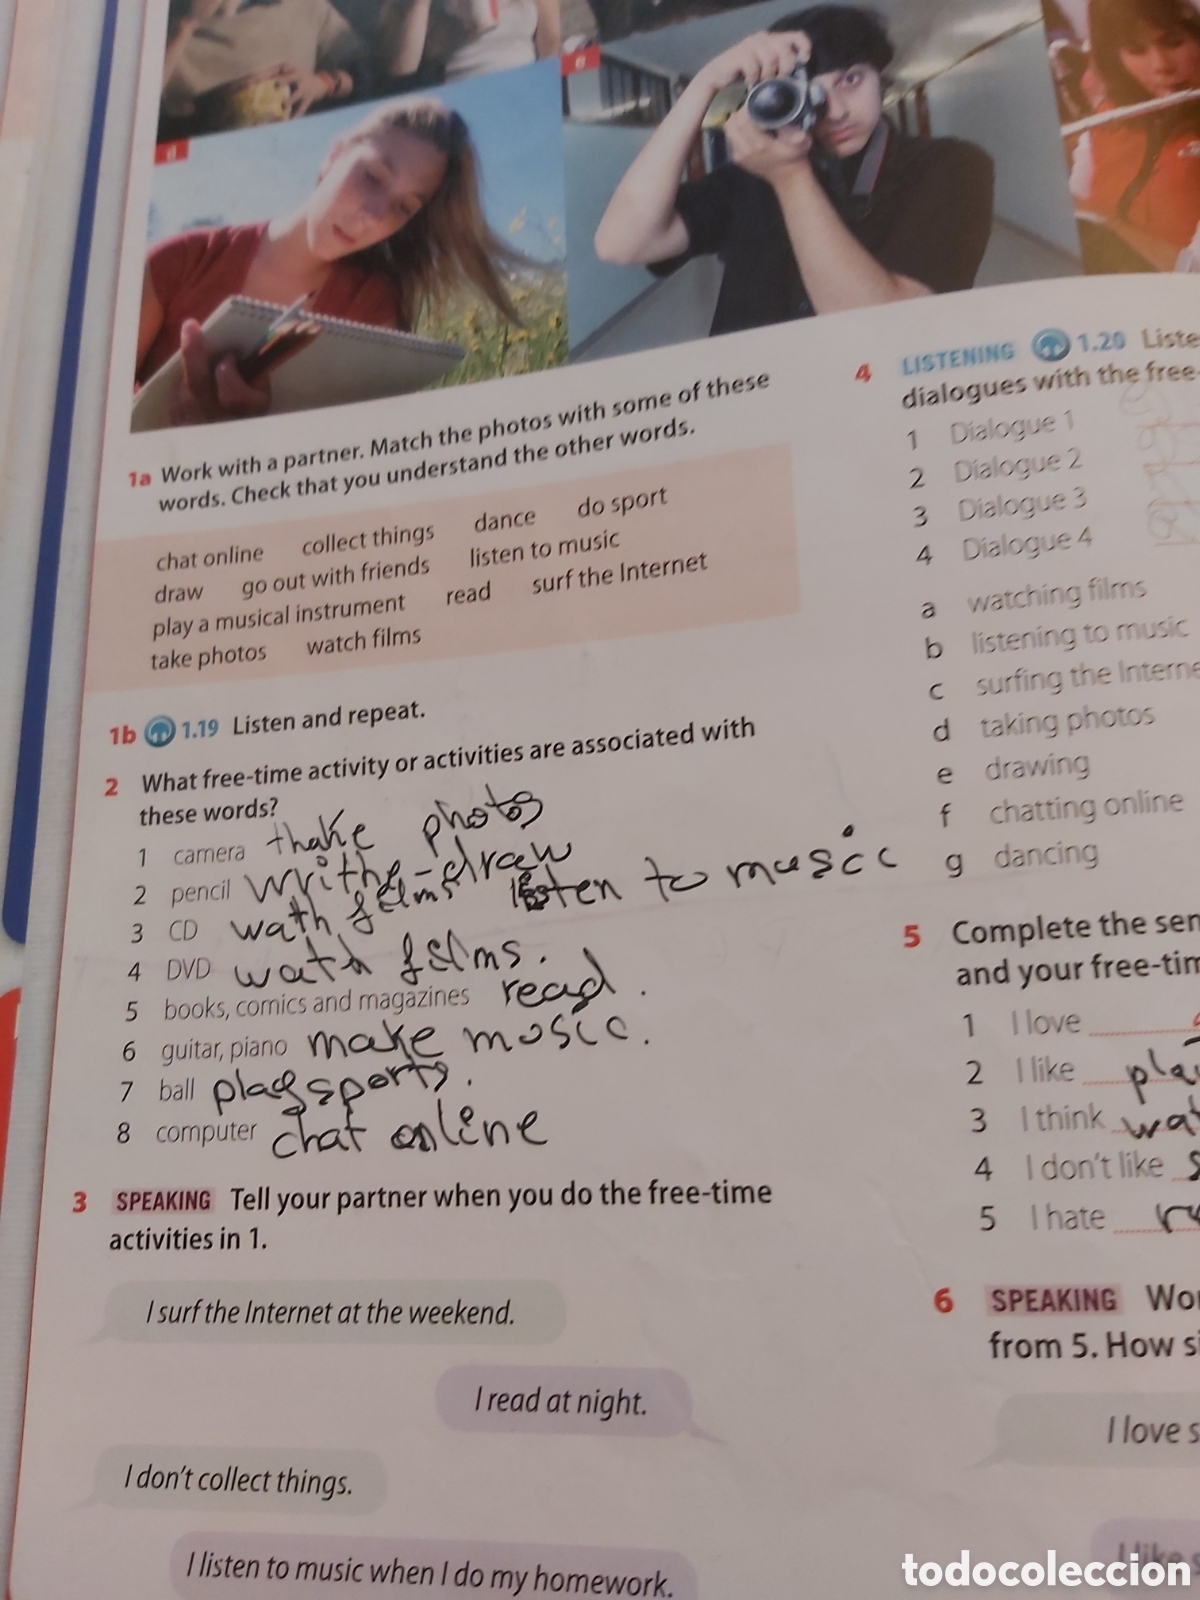 d
e
1a Work with a partner. Match the photos with some of these
words. Check that you understand the other words.
chat online collect things dance do sport
draw go out with friends listen to music
play a musical instrument read surf the Internet
take photos watch films
1b 1.19 Listen and repeat.
2 What free-time activity or activities are associated with
these words?
1 camera thake photos
2 pencil writhe-draw
3 CD wath films listen to music
4 DVD wath films.
5 books, comics and magazines read.
6 guitar, piano make mosic.
7 ball play sports.
8 computer chat online
3 SPEAKING Tell your partner when you do the free-time
activities in 1.
I surf the Internet at the weekend.
I read at night.
I don't collect things.
I listen to music when I do my homework.
4 LISTENING 1.20 Liste
dialogues with the free-
1 Dialogue 1
2 Dialogue 2
3 Dialogue 3
4 Dialogue 4
a watching films
b listening to music
c surfing the Interne
d taking photos
e drawing
f chatting online
g dancing
5 Complete the sen
and your free-tim
1 I love
2 I like pla
3 I think wat
4 I don't like s
5 I hate r
6 SPEAKING Wor
from 5. How si
I love s
I like s
todocoleccion